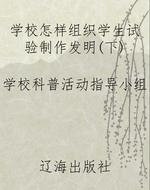 学校怎样组织学生试
验制作发明(下)
学校科普活动指导小组
辽海出版社